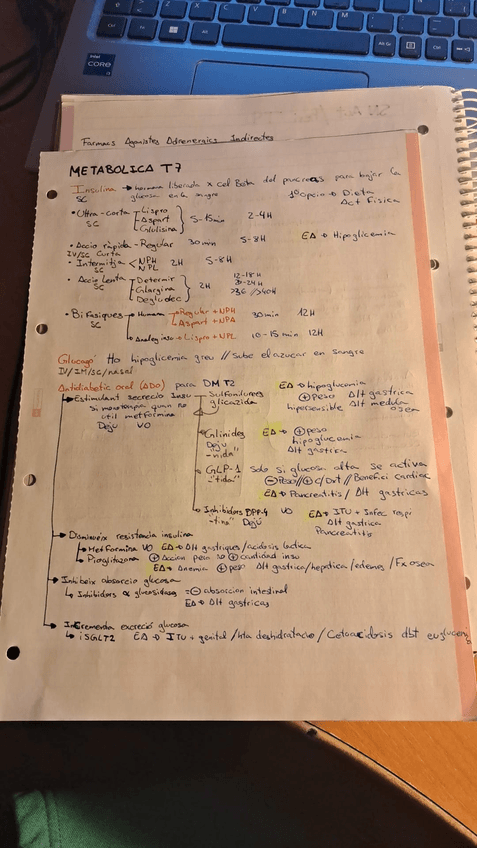 intel
CORE
i3
Ctrl
Fn
Alt
Alt Gr
Ctrl
Farmacs Agonistes Adrenergics Indirectes
METABOLICA T7
Insulina → hormona liberada x cel Beta del pancreas para bajar la
SC glucosa en la sangre 1º opcio → Dieta
Act Fisica
• Ultra-corta Lispro
SC Aspart 5-15min 2-4H
Glulisina
• Accio ràpida - Regular 30min 5-8H EA → Hipoglicemia
IV/SC Curta
• Intermitja < NPH 2H 5-8H
SC NPL
• Accio Lenta Determir 12-18H
SC Glargina 2H 20-24H
Degludec
• Bifasiques → Humana Regular + NPH 30min 12H
SC Aspart + NPA
→ Analogins → Lispro + NPL 10-15 min 12H
Glucagó Hto hipoglicemia greu // sube el azucar en sangre
IV/IM/SC/nasal
Antidiabetic oral (ADO) para DM T2
→ Estimulant secrecio Insu Sulfonilurees EA → hipoglucemia
Si monoterapia quan no glicazida ⊕ Peso Alt gastrica
util metformina hipersensible Alt medula
Dejú VO osea
Glinides EA → ⊕ peso
Dejú hipoglucemia
"nida" Alt gastrica
GLP-1 Solo si glucosa alta se activa
"tida" ⊖ Peso // ⊕ c/Dxt // Benefici cardiac
EA → Pancreatitis / Alt gastricas
Inhibidors DPP-4 VO EA → ITU + Infec respi
"tina" Dejú Alt gastrica
Pancreatitis
→ Disminueix resistencia insulina
→ Metformina VO EA → Alt gastriques / acidosis lactica
→ Pioglitazona ⊕ Accion pero no ⊕ cantidad insu
EA → Anemia ⊕ peso Alt gastrica/hepatica/edemes/Fx osea
→ Inhibeix absorcio glucosa
↳ Inhibidors α glucosidases = ⊖ absorcion intestinal
EA → Alt gastricas
→ Incrementa excreció glucosa
↳ iSGLT2 EA → ITU + genital / hta deshidratacio / Cetoacidosis dbt euglucemia